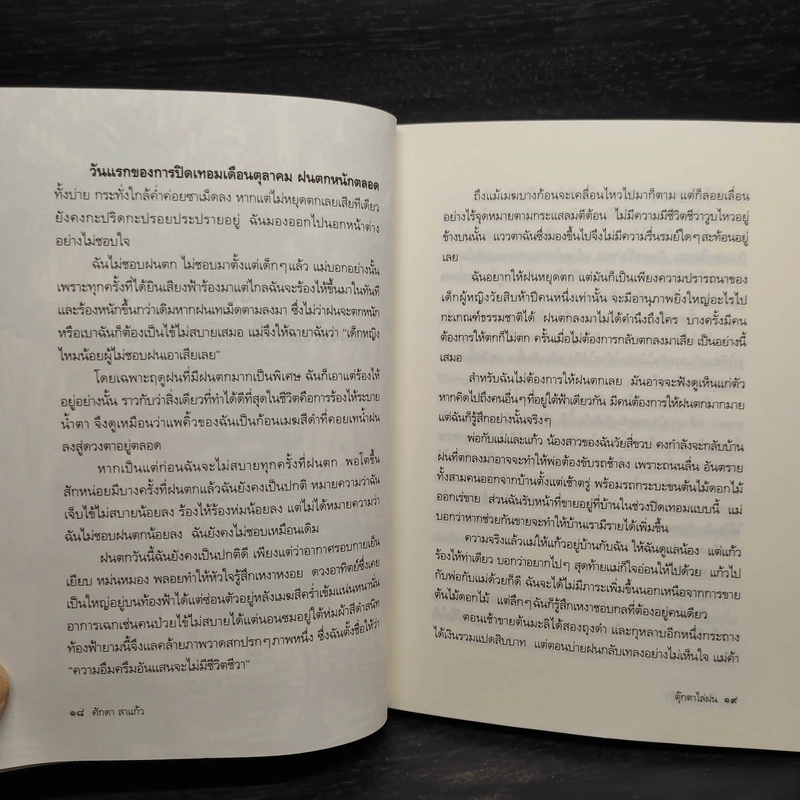 วันแรกของการปิดเทอมเดือนตุลาคม ฝนตกหนักตลอด
ทั้งบ่าย กระทั่งใกล้ค่ำค่อยซาเม็ดลง หากแต่ไม่หยุดตกเลยเสียทีเดียว
ยังคงกะปริดกะปรอยประปรายอยู่ ฉันมองออกไปนอกหน้าต่าง
อย่างไม่ชอบใจ
ฉันไม่ชอบฝนตก ไม่ชอบมาตั้งแต่เด็กๆ แล้ว แม่บอกอย่างนั้น
เพราะทุกครั้งที่ได้ยินเสียงฟ้าร้องมาแต่ไกลฉันจะร้องไห้ขึ้นมาในทันที
และร้องหนักขึ้นกว่าเดิมหากฝนเทเม็ดตามลงมา ซึ่งไม่ว่าฝนจะตกหนัก
หรือเบาฉันก็ต้องเป็นไข้ไม่สบายเสมอ แม่จึงให้ฉายาฉันว่า “เด็กหญิง
ไหมน้อยผู้ไม่ชอบฝนเอาเสียเลย”
โดยเฉพาะฤดูฝนที่มีฝนตกมากเป็นพิเศษ ฉันก็เอาแต่ร้องไห้
อยู่อย่างนั้น ราวกับว่าสิ่งเดียวที่ทำได้ดีที่สุดในชีวิตคือการร้องไห้ระบาย
น้ำตา จึงดูเหมือนว่าแพคิ้วของฉันเป็นก้อนเมฆสีดำที่คอยเทน้ำฝน
ลงสู่ดวงตาอยู่ตลอด
หากเป็นแต่ก่อนฉันจะไม่สบายทุกครั้งที่ฝนตก พอโตขึ้น
สักหน่อยมีบางครั้งที่ฝนตกแล้วฉันยังคงเป็นปกติ หมายความว่าฉัน
เจ็บไข้ไม่สบายน้อยลง ร้องไห้ร้องห่มน้อยลง แต่ไม่ได้หมายความว่า
ฉันไม่ชอบฝนตกน้อยลง ฉันยังคงไม่ชอบเหมือนเดิม
ฝนตกวันนี้ฉันยังคงเป็นปกติดี เพียงแต่ว่าอากาศรอบกายเย็น
เยียบ หม่นหมอง พลอยทำให้หัวใจรู้สึกเหงาหงอย ดวงอาทิตย์ซึ่งเคย
เป็นใหญ่อยู่บนท้องฟ้าได้แต่ซ่อนตัวอยู่หลังเมฆสีคร่ำเข้มแน่นหนานั่น
อาการเฉกเช่นคนป่วยไข้ไม่สบายได้แต่นอนซมอยู่ใต้ห่มผ้าสีดำสนิท
ท้องฟ้ายามนี้จึงแลคล้ายภาพวาดสกปรกๆ ภาพหนึ่ง ซึ่งฉันตั้งชื่อให้ว่า
“ความอึมครึมอันแสนจะไม่มีชีวิตชีวา”
๑๘ ศักดา สาแก้ว
ถึงแม้เมฆบางก้อนจะเคลื่อนไหวไปมาก็ตาม แต่ก็ลอยเลื่อน
อย่างไร้จุดหมายตามกระแสลมตีต้อน ไม่มีความมีชีวิตชีวาวูบไหวอยู่
ข้างบนนั้น แววตาฉันซึ่งมองขึ้นไปจึงไม่มีความรื่นรมย์ใดๆ สะท้อนอยู่
เลย
ฉันอยากให้ฝนหยุดตก แต่มันก็เป็นเพียงความปรารถนาของ
เด็กผู้หญิงวัยสิบห้าปีคนหนึ่งเท่านั้น จะมีอานุภาพยิ่งใหญ่อะไรไป
กะเกณฑ์ธรรมชาติได้ ฝนตกลงมาไม่ได้คำนึงถึงใคร บางครั้งมีคน
ต้องการให้ตกก็ไม่ตก ครั้นเมื่อไม่ต้องการกลับตกลงมาเสีย เป็นอย่างนี้
เสมอ
สำหรับฉันไม่ต้องการให้ฝนตกเลย มันอาจจะฟังดูเห็นแก่ตัว
หากคิดไปถึงคนอื่นๆ ที่อยู่ใต้ฟ้าเดียวกัน มีคนต้องการให้ฝนตกมากมาย
แต่ฉันก็รู้สึกอย่างนั้นจริงๆ
พ่อกับแม่และแก้ว น้องสาวของฉันวัยสี่ขวบ คงกำลังจะกลับบ้าน
ฝนที่ตกลงมาอาจจะทำให้พ่อต้องขับรถช้าลง เพราะถนนลื่น อันตราย
ทั้งสามคนออกจากบ้านตั้งแต่เช้าตรู่ พร้อมรถกระบะขนต้นไม้ดอกไม้
ออกเร่ขาย ส่วนฉันรับหน้าที่ขายอยู่ที่บ้านในช่วงปิดเทอมแบบนี้ แม่
บอกว่าหากช่วยกันขายจะทำให้บ้านเรามีรายได้เพิ่มขึ้น
ความจริงแล้วแม่ให้แก้วอยู่บ้านกับฉัน ให้ฉันดูแลน้อง แต่แก้ว
ร้องไห้ท่าเดียว บอกว่าอยากไปๆ สุดท้ายแม่ก็ใจอ่อนให้ไปด้วย แก้วไป
กับพ่อกับแม่ด้วยก็ดี ฉันจะได้ไม่มีภาระเพิ่มขึ้นนอกเหนือจากการขาย
ต้นไม้ดอกไม้ แต่ลึกๆ ฉันก็รู้สึกเหงาชอบกลที่ต้องอยู่คนเดียว
ตอนเช้าขายต้นมะลิได้สองถุงดำ และกุหลาบอีกหนึ่งกระถาง
ได้เงินรวมแปดสิบบาท แต่ตอนบ่ายฝนกลับเทลงอย่างไม่เห็นใจ แม่ค้า
ตุ๊กตาไล่ฝน ๑๙